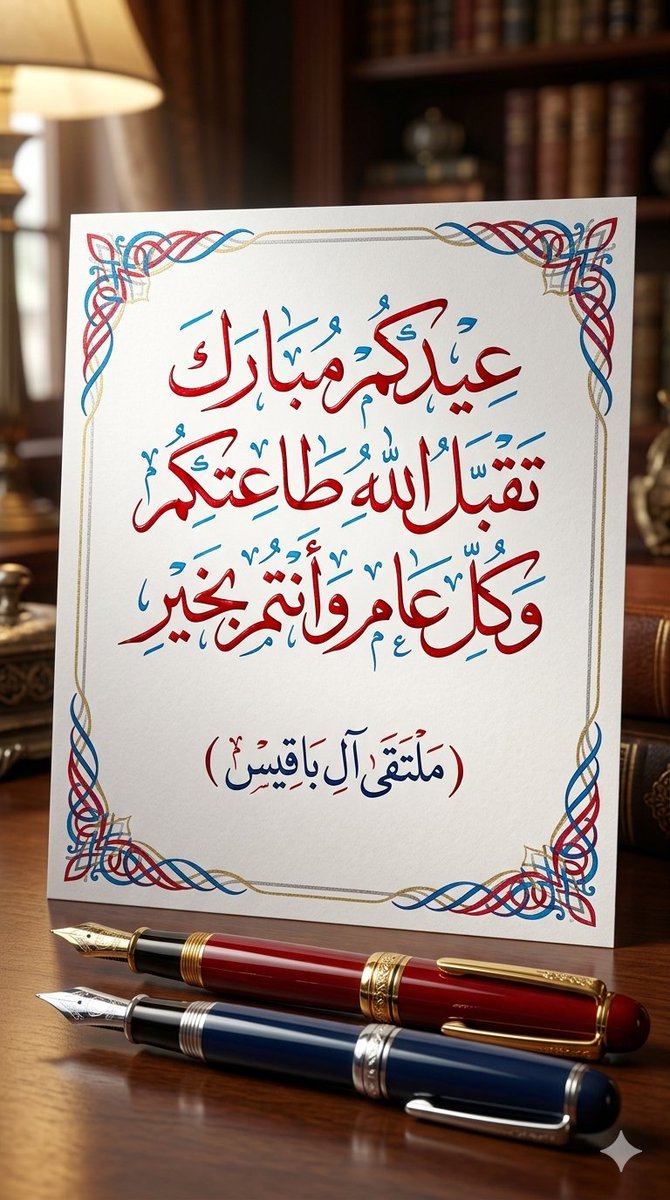 عِيدكُم مُبَارَك
تَقَبّلَ اللهُ طَاعِتكُم
وَكُلّ عَام وَأَنْتُم بِخَيْرِ
(مَلْتَقَى آلِ بَاقِيسْ)